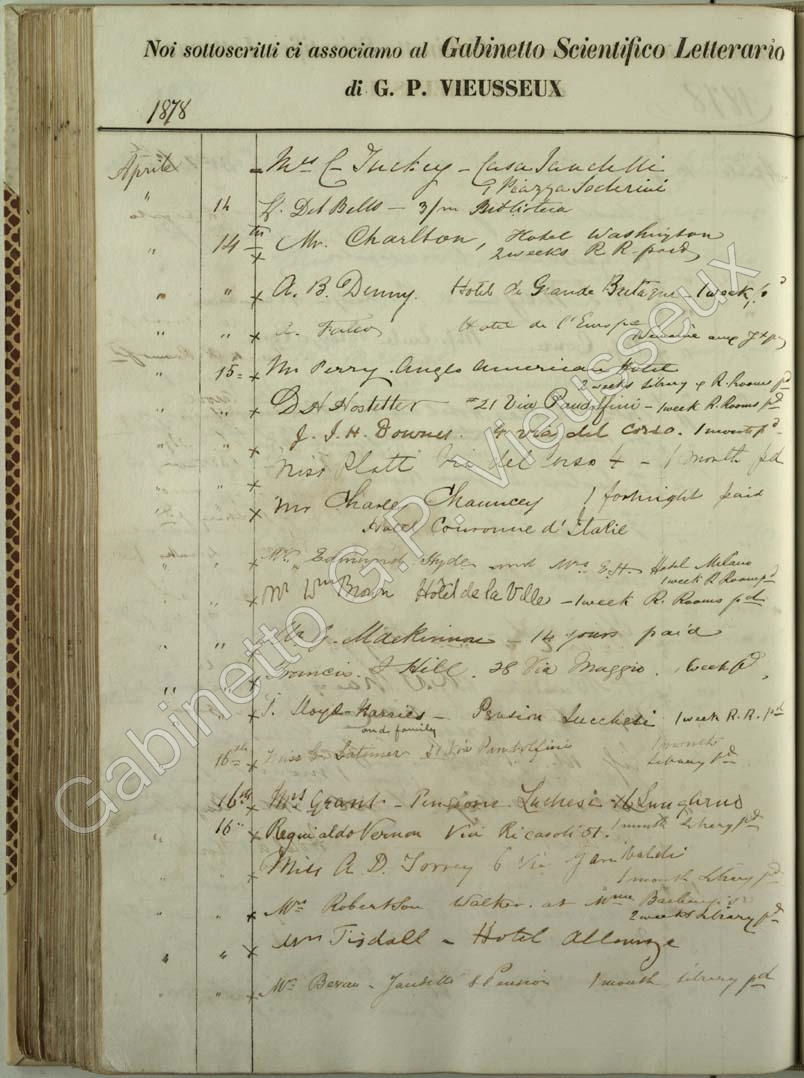 Noi sottoscritti ci associamo al Gabinetto Scientifico Letterario
di G. P. VIEUSSEUX
1878
Aprile Mrs C Tuckey - Casa
9 Piazza Soderini
" 14 Del Bello - 3/m Biblioteca
" 14th x Mr. Charlton, Hotel Washington
2 weeks R R. paid
" " x A. B. Denny. Hotel de Grande Bretagne - 1 week, pd
" " x A. Hotel de l'Europe
" 15 - x Mr Perry. Anglo American Hotel
2 weeks library & R. Rooms pd
" " x D H Hostetter #21 Via Pandolfini - 1 week R. Rooms pd
J. I. H. Downes. 4 via del Corso. 1 month pd
" " x Miss Platt Via del Corso 4 - 1 month pd
" " x Mr Charles Chauncey 1 fortnight paid
Hotel Couronne d'Italie
" " x Mr. Edmund Hyde and Mrs E. H. Hotel Milano
1 week R Rooms pd
" " x Mr Wm Brown Hôtel de la Ville - 1 week R. Rooms pd
" " x Mackinnon - 14 jours paid
" " x Francis. Hill. 28 Via Maggio. 1 week pd,
" " x Lloyd-Harries - Pension Lucchesi 1 week R. R. pd
and family
16th x Miss Latimer Via Pandolfini 1 month
Library pd
16th x Mrs Grant - Pensione Luchesi 16 Lungarno
16 " x Reginaldo Vernon Via Ricasoli 1 month Library pd
" " x Miss A. D. Torrey 6 Via Garibaldi
1 month Library pd
" " x Mrs Robertson Walker. at Mme
2 weeks Library pd
" " x Tisdall - Hotel
" " x Mr Bevan - Pension 1 month Library pd
Gabinetto G.P. Vieusseux